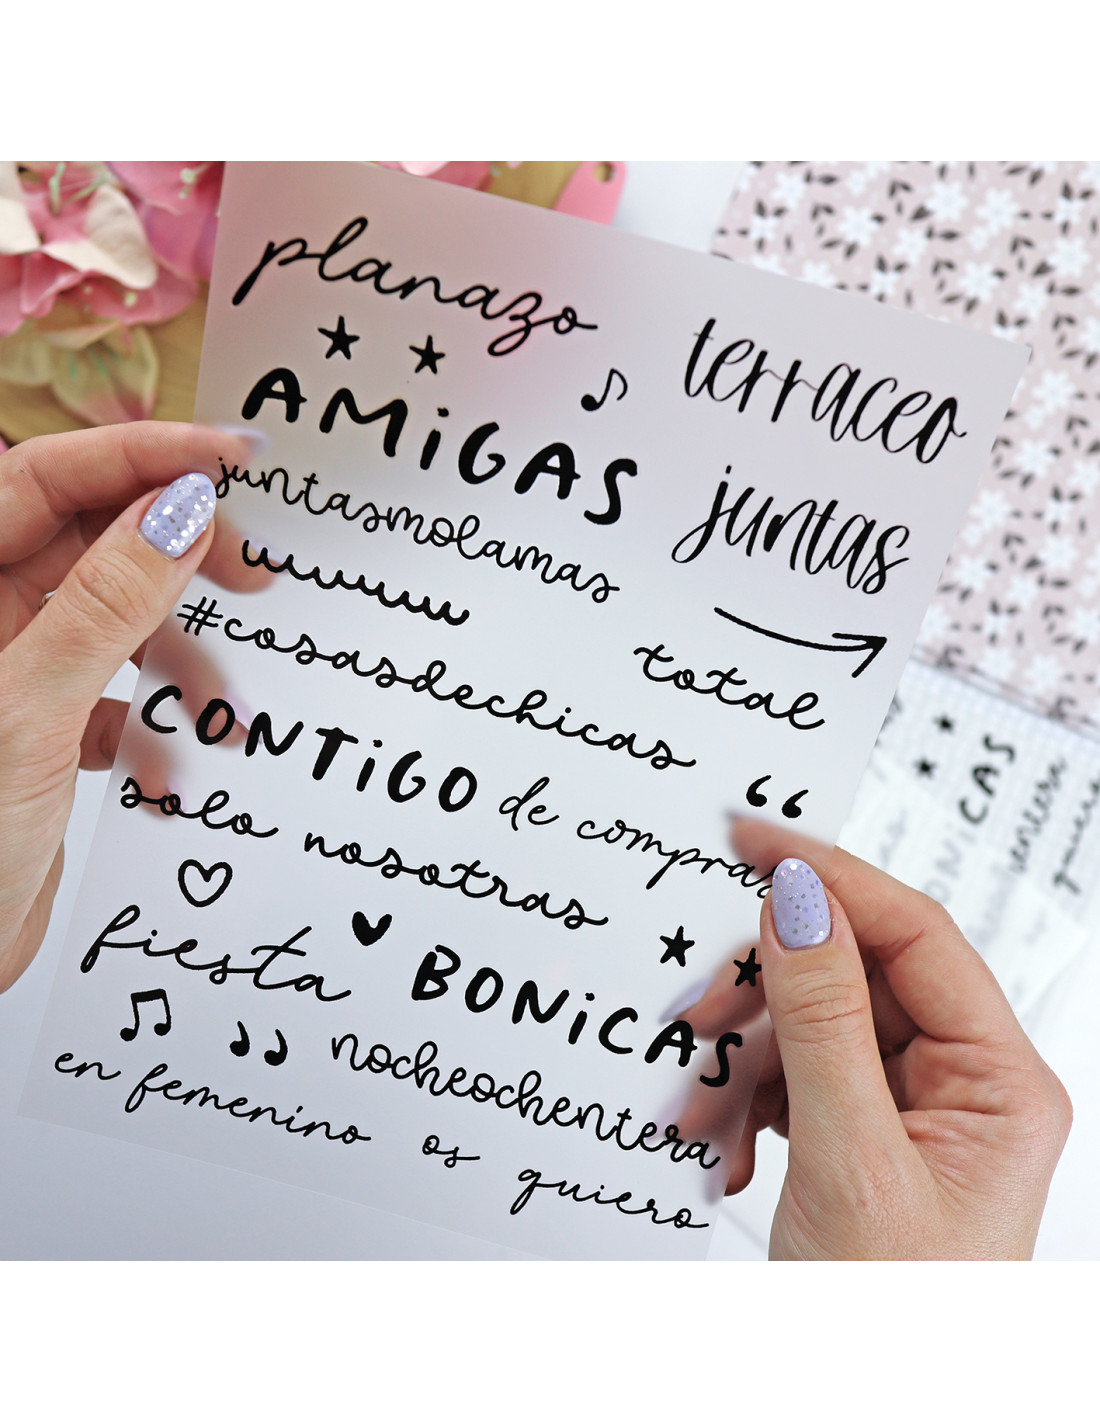 planazo
terraceo
AMiGAS
juntas
juntasmolamas
total
#cosasdechicas
CONTiGO de compras
“
solo nosotras
fiesta BONiCAS
nocheochentera
en femenino os quiero
BONiCAS